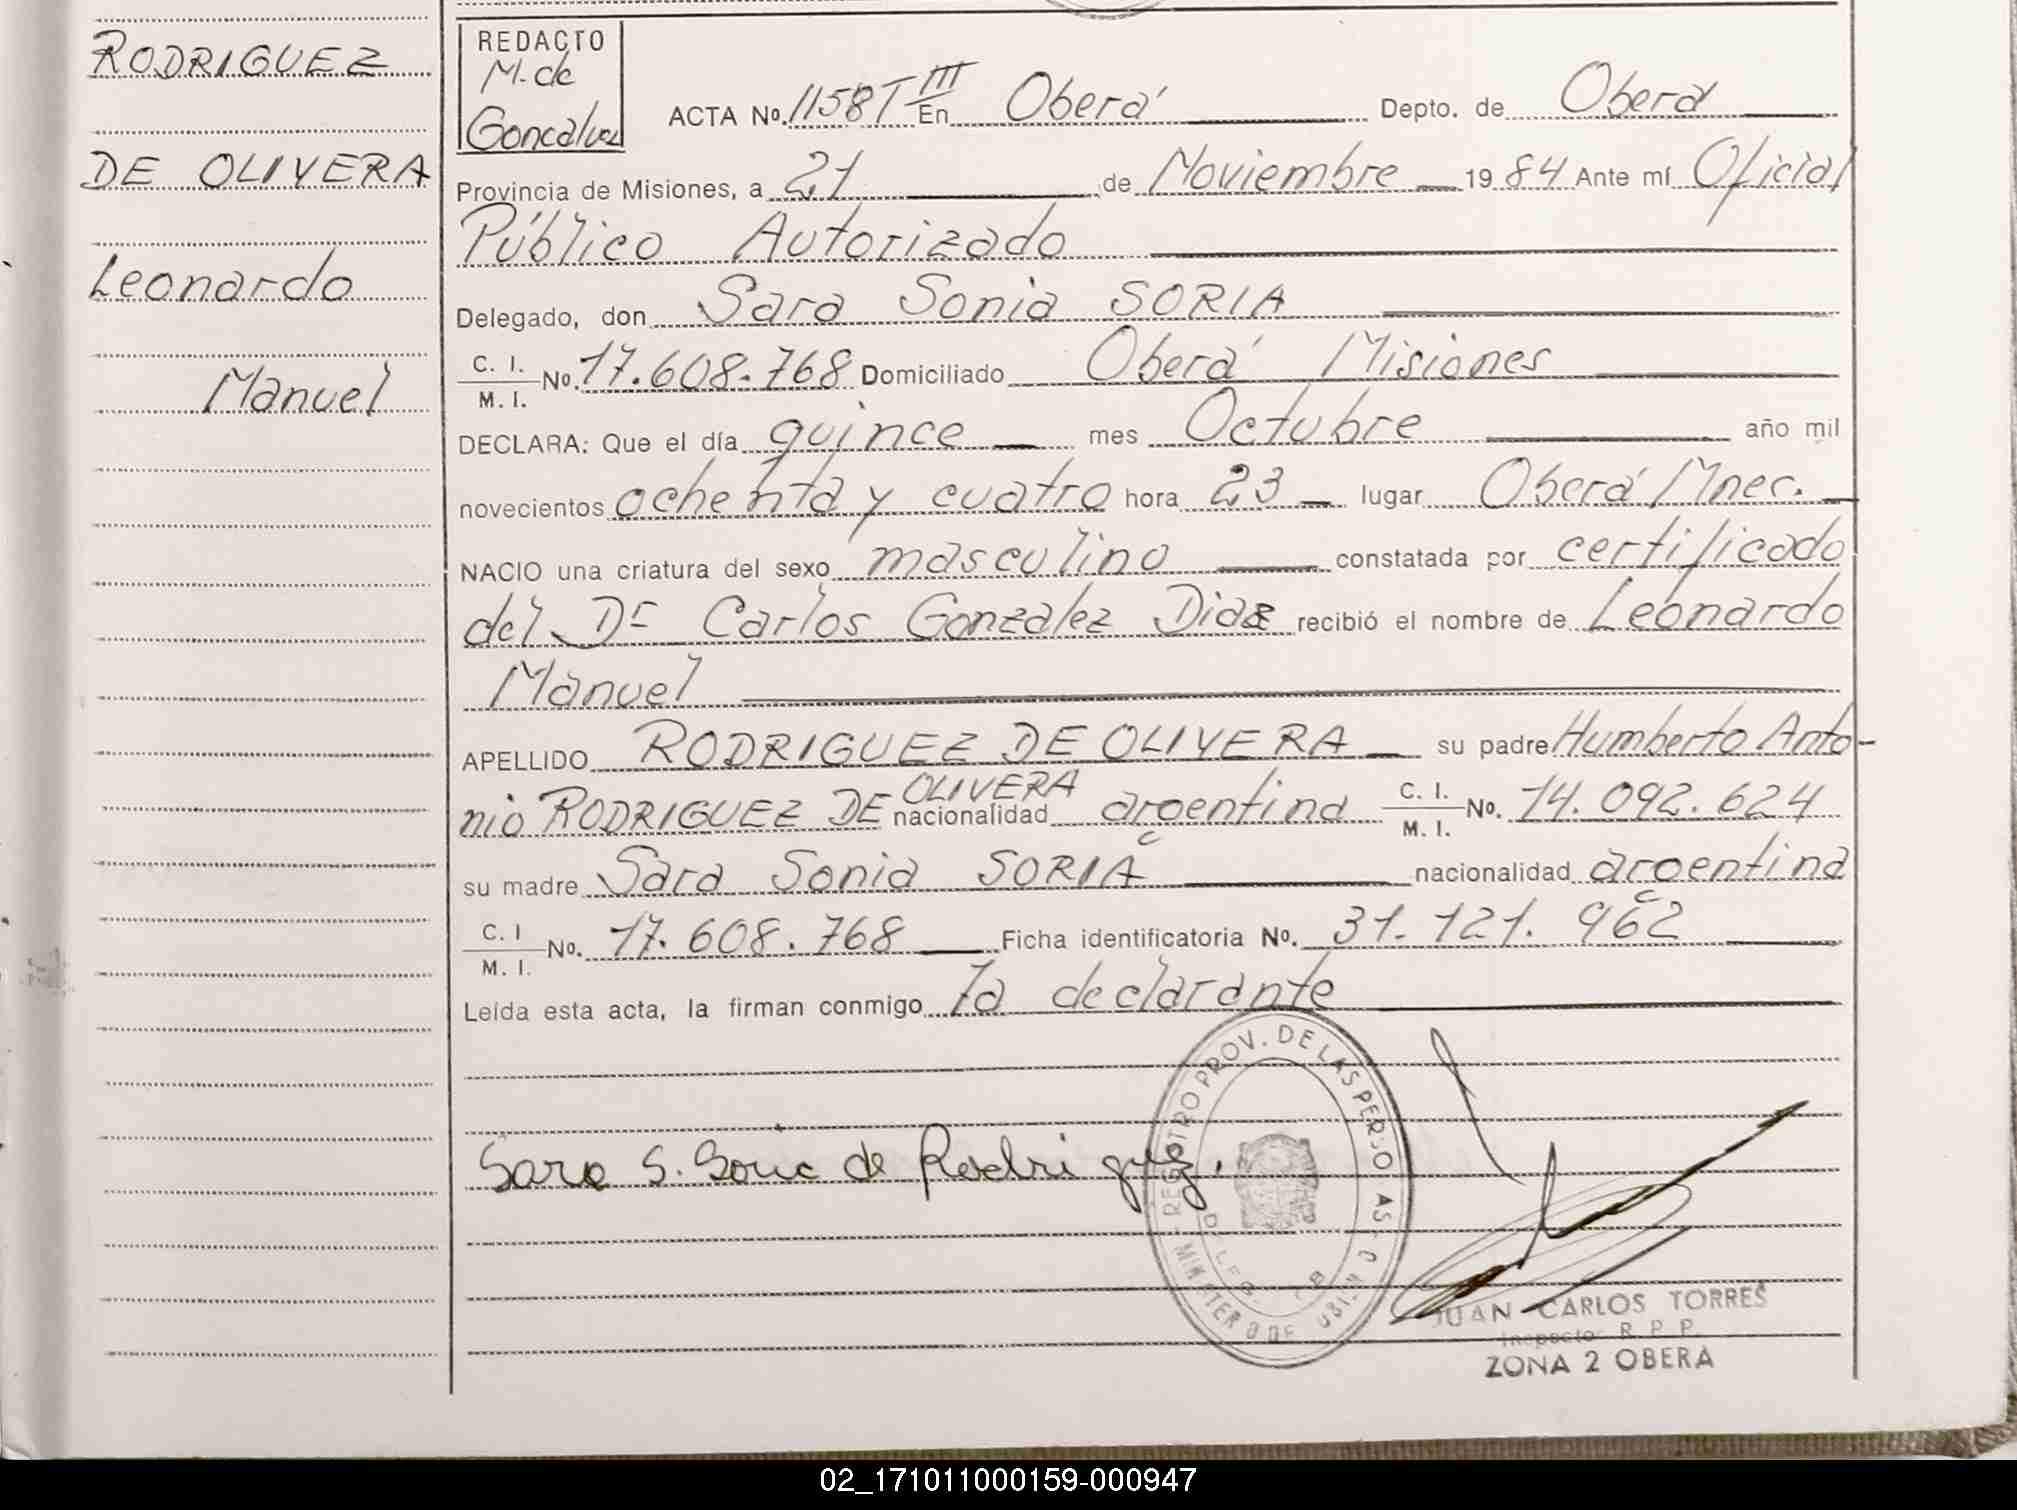 RODRIGUEZ
DE OLIVERA
Leonardo
Manuel
REDACTO
M. de
Goncalvez
ACTA No. 1158 T III En Oberá Depto. de Oberá
Provincia de Misiones, a 21 de Noviembre 1984 Ante mí Oficial
Público Autorizado
Delegado, don Sara Sonia SORIA
C. I.
M. I. No. 17.608.768 Domiciliado Oberá Misiones
DECLARA: Que el día quince mes Octubre año mil
novecientos ochenta y cuatro hora 23 lugar Oberá Mnes.
NACIO una criatura del sexo masculino constatada por certificado
del Dr Carlos Gonzalez Diaz recibió el nombre de Leonardo
Manuel
APELLIDO RODRIGUEZ DE OLIVERA su padre Humberto Anto-
nio RODRIGUEZ DE OLIVERA nacionalidad argentina C. I. M. I. No. 14.092.624
su madre Sara Sonia SORIA nacionalidad argentina
C. I M. I. No. 17.608.768 Ficha identificatoria No. 31.121.962
Leída esta acta, la firman conmigo la declarante
Sara S. Soria de Rodriguez.
REGISTRO PROV. DE LAS PERSONAS
JUAN CARLOS TORRES
Inspector R. P. P.
ZONA 2 OBERA
02_171011000159-000947